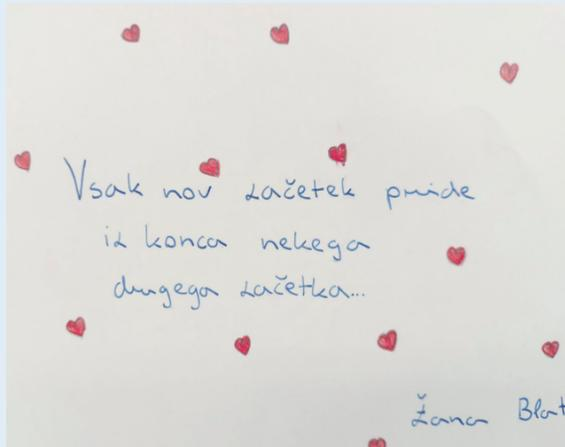 Vsak nov začetek pride
iz konca nekega
drugega začetka...
Žana